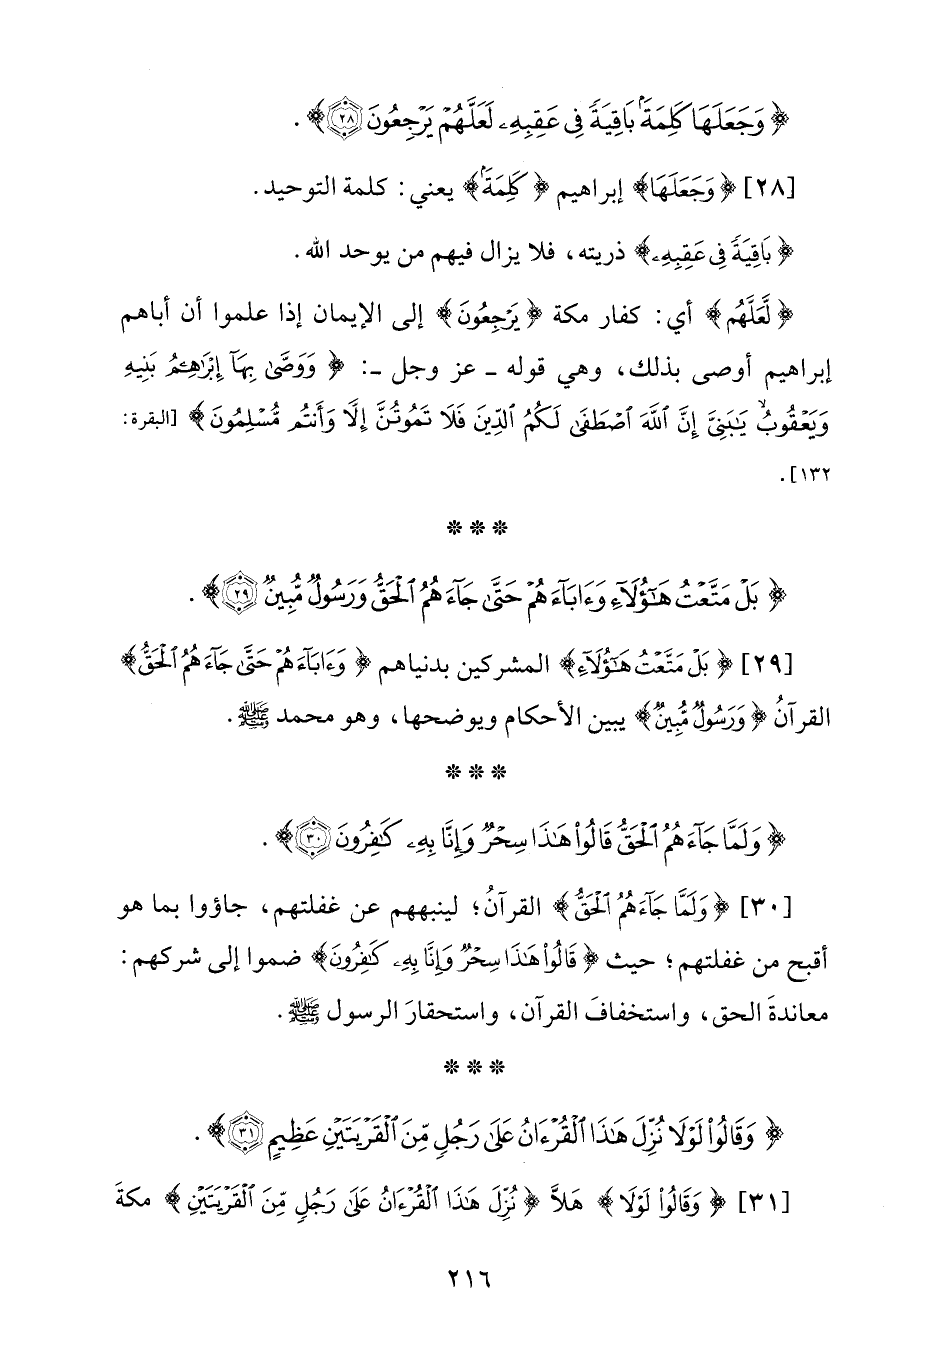 ﴿ وَجَعَلَهَا كَلِمَةًۢ بَاقِيَةً فِى عَقِبِهِۦ لَعَلَّهُمْ يَرْجِعُونَ ٢٨ ﴾ .
[٢٨] ﴿ وَجَعَلَهَا ﴾ إبراهيم ﴿ كَلِمَةًۢ ﴾ يعني: كلمة التوحيد.
﴿ بَاقِيَةً فِى عَقِبِهِۦ ﴾ ذريته، فلا يزال فيهم من يوحد الله.
﴿ لَّعَلَّهُم ﴾ أي: كفار مكة ﴿ يَرْجِعُونَ ﴾ إلى الإيمان إذا علموا أن أباهم
إبراهيم أوصى بذلك، وهي قوله ـ عز وجل ـ: ﴿ وَوَصَّىٰ بِهَآ إِبْرَٰهِـۧمُ بَنِيهِ
وَيَعْقُوبُ يَٰبَنِىَّ إِنَّ ٱللَّهَ ٱصْطَفَىٰ لَكُمُ ٱلدِّينَ فَلَا تَمُوتُنَّ إِلَّا وَأَنتُم مُّسْلِمُونَ ﴾ [البقرة:
١٣٢].
* * *
﴿ بَلْ مَتَّعْتُ هَٰٓؤُلَآءِ وَءَابَآءَهُمْ حَتَّىٰ جَآءَهُمُ ٱلْحَقُّ وَرَسُولٌ مُّبِينٌ ٢٩ ﴾ .
[٢٩] ﴿ بَلْ مَتَّعْتُ هَٰٓؤُلَآءِ ﴾ المشركين بدنياهم ﴿ وَءَابَآءَهُمْ حَتَّىٰ جَآءَهُمُ ٱلْحَقُّ ﴾
القرآنُ ﴿ وَرَسُولٌ مُّبِينٌ ﴾ يبين الأحكام ويوضحها، وهو محمد ﷺ.
* * *
﴿ وَلَمَّا جَآءَهُمُ ٱلْحَقُّ قَالُوا۟ هَٰذَا سِحْرٌ وَإِنَّا بِهِۦ كَٰفِرُونَ ٣٠ ﴾ .
[٣٠] ﴿ وَلَمَّا جَآءَهُمُ ٱلْحَقُّ ﴾ القرآنُ؛ لينبههم عن غفلتهم، جاؤوا بما هو
أقبح من غفلتهم؛ حيث ﴿ قَالُوا۟ هَٰذَا سِحْرٌ وَإِنَّا بِهِۦ كَٰفِرُونَ ﴾ ضموا إلى شركهم:
معاندةَ الحق، واستخفافَ القرآن، واستحقارَ الرسول ﷺ .
* * *
﴿ وَقَالُوا۟ لَوْلَا نُزِّلَ هَٰذَا ٱلْقُرْءَانُ عَلَىٰ رَجُلٍ مِّنَ ٱلْقَرْيَتَيْنِ عَظِيمٍ ٣١ ﴾ .
[٣١] ﴿ وَقَالُوا۟ لَوْلَا ﴾ هَلاَّ ﴿ نُزِّلَ هَٰذَا ٱلْقُرْءَانُ عَلَىٰ رَجُلٍ مِّنَ ٱلْقَرْيَتَيْنِ ﴾ مكةَ
٢١٦